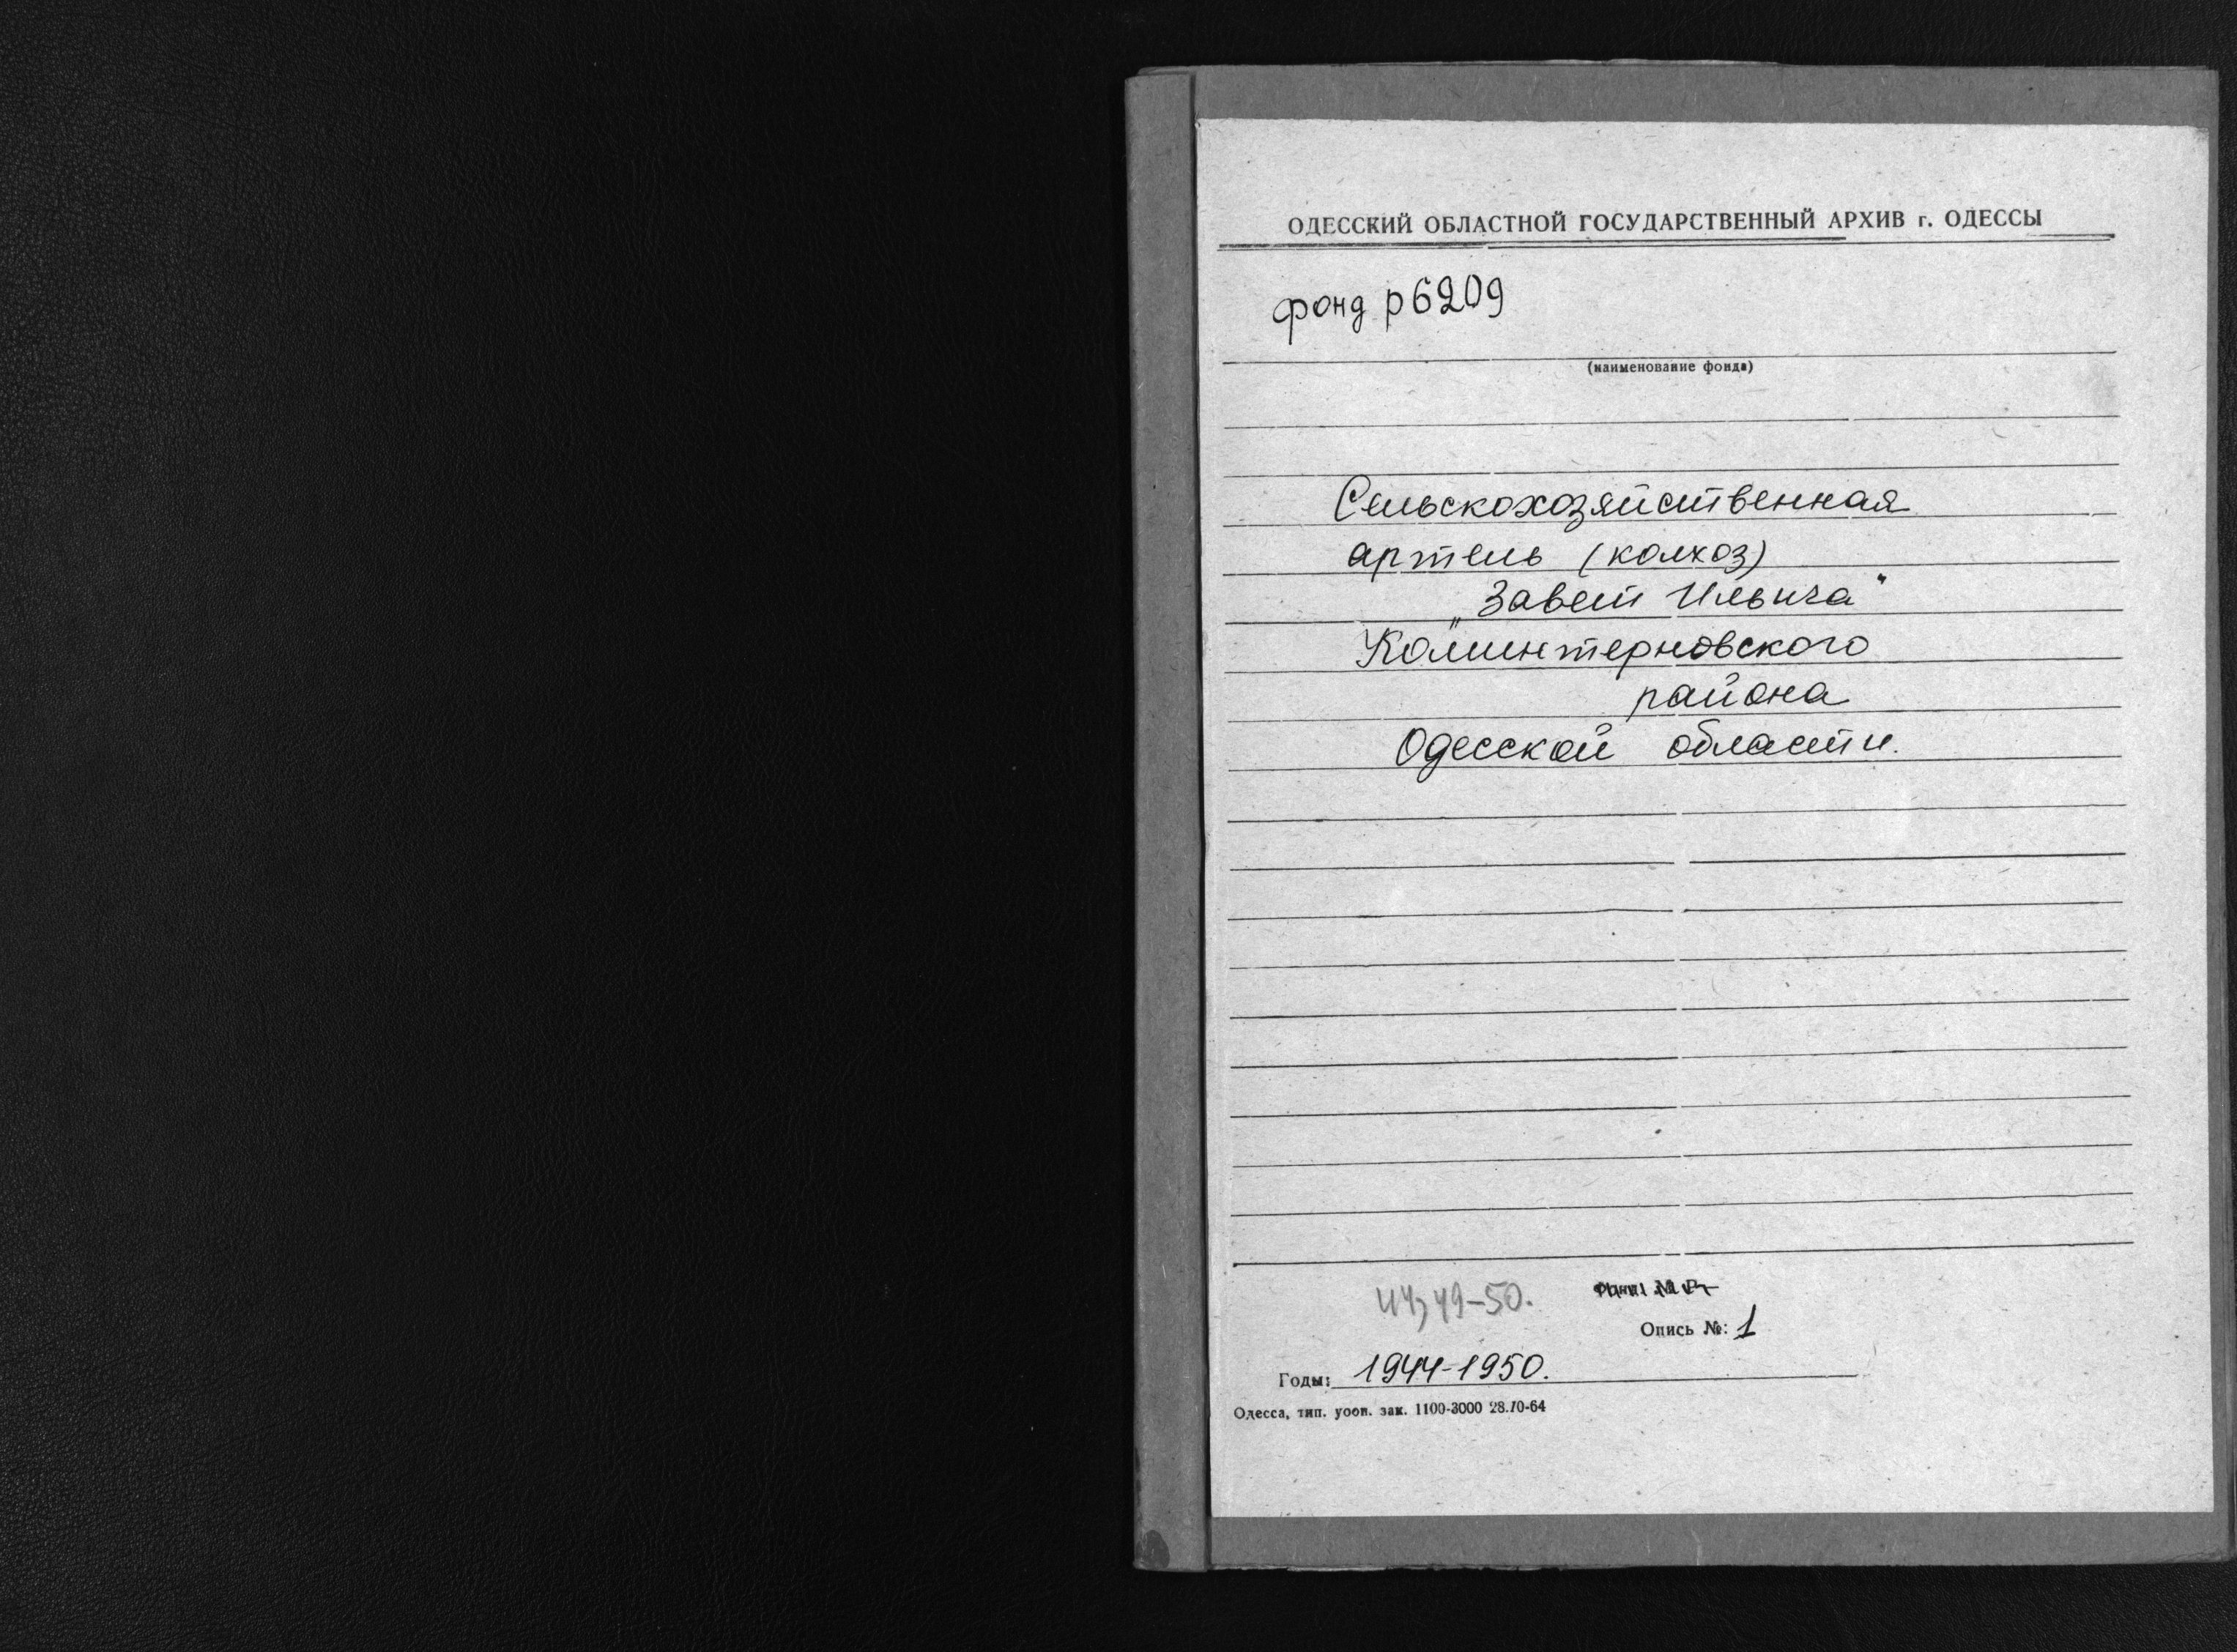 ОДЕССКИЙ ОБЛАСТНОЙ ГОСУДАРСТВЕННЫЙ АРХИВ г. ОДЕССЫ
фонд р6209
(наименование фонда)
Сельскохозяйственная
артель (колхоз)
„Завет Ильича"
Коминтерновского
района
Одесской области.
44, 49-50.
Опись №: 1
Годы: 1944-1950.
Одесса, тип. уооп. зак. 1100-3000 28.10-64